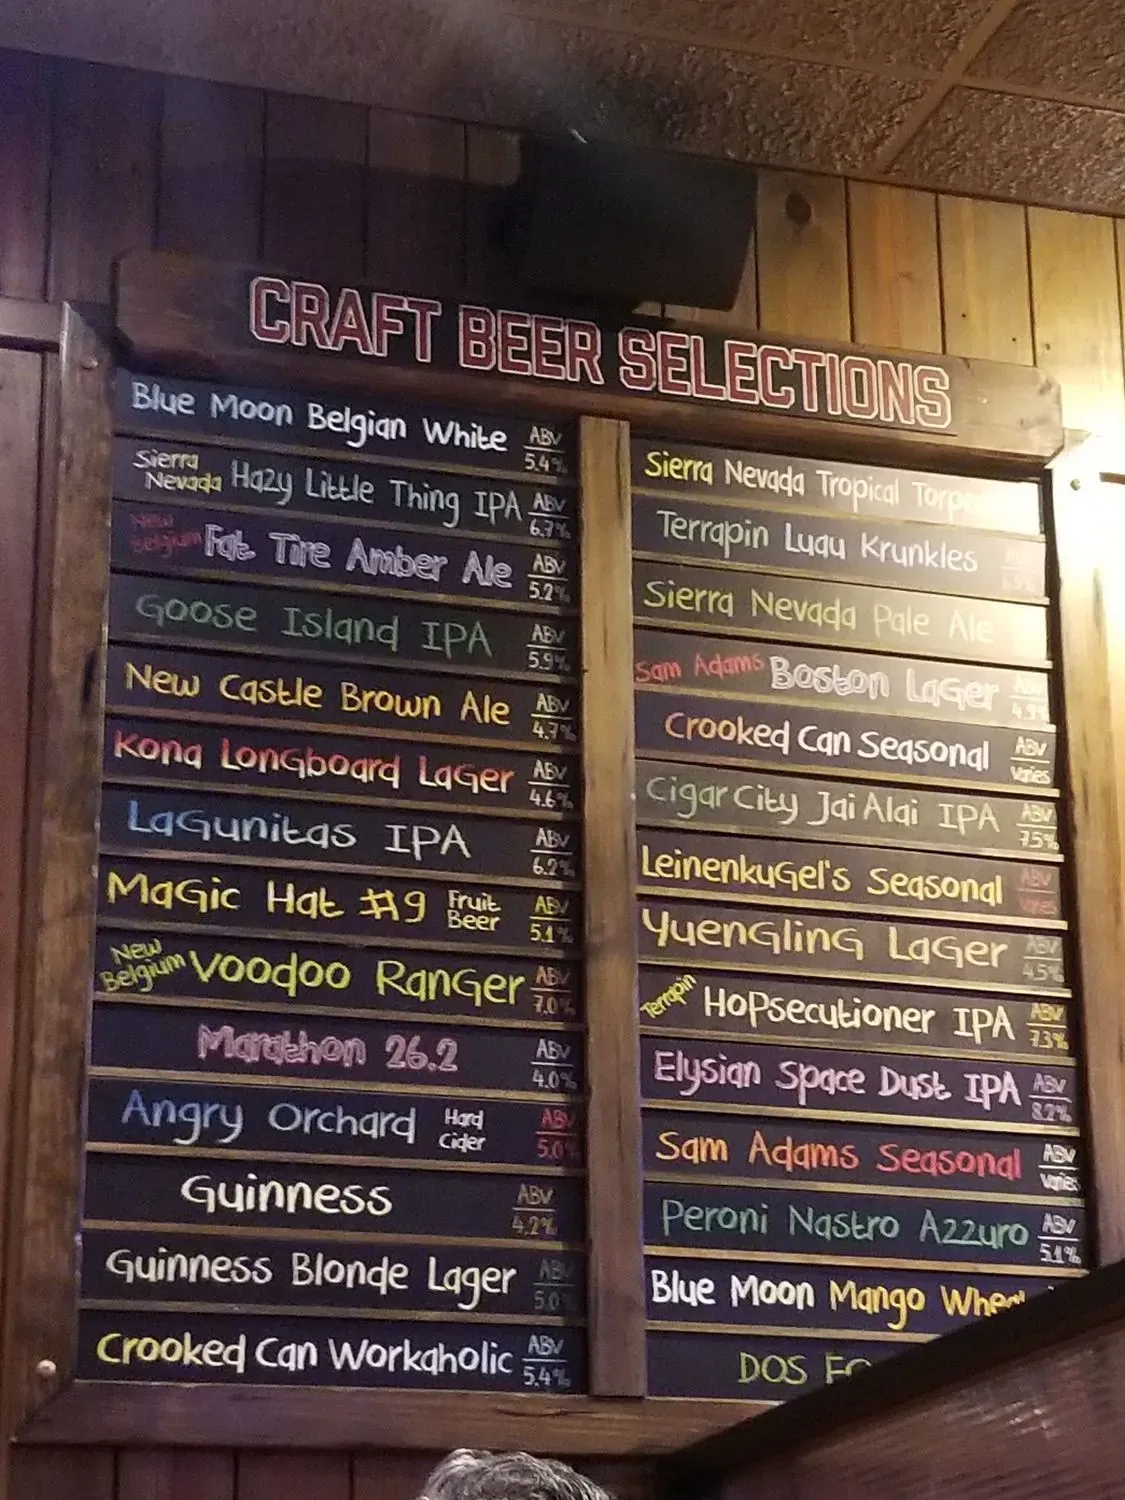 CRAFT BEER SELECTIONS
Blue Moon Belgian White ABV 5.4%
Sierra Nevada Hazy Little Thing IPA ABV 6.7%
New Belgium Fat Tire Amber Ale ABV 5.2%
Goose Island IPA ABV 5.9%
New Castle Brown Ale ABV 4.7%
Kona Longboard Lager ABV 4.6%
Lagunitas IPA ABV 6.2%
Magic Hat #9 Fruit Beer ABV 5.1%
New Belgium Voodoo Ranger ABV 7.0%
Marathon 26.2 ABV 4.0%
Angry Orchard Hard Cider ABV 5.0%
Guinness ABV 4.2%
Guinness Blonde Lager ABV 5.0
Crooked Can Workaholic ABV 5.4%
Sierra Nevada Tropical
Terrapin Luau Krunkles
Sierra Nevada Pale Ale
Sam Adams Boston Lager ABV 4.9%
Crooked Can Seasonal ABV Varies
Cigar City Jai Alai IPA ABV 7.5%
Leinenkugel's Seasonal ABV Varies
Yuengling Lager ABV 4.5%
Terrapin Hopsecutioner IPA ABV 7.3%
Elysian Space Dust IPA ABV 8.2%
Sam Adams Seasonal ABV Varies
Peroni Nastro Azzuro ABV 5.1%
Blue Moon Mango
DOS